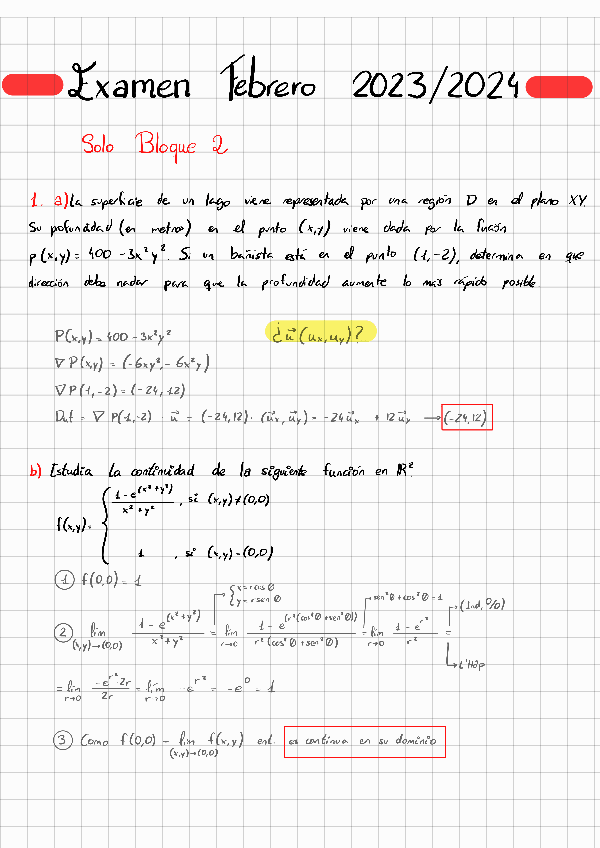 Examen Febrero 2023/2024
Solo Bloque 2
1. a) La superficie de un lago viene representada por una región D en el plano XY.
Su pofundidad (en metros) en el punto (x,y) viene dada por la función
p(x,y) = 400 - 3x²y². Si un bañista está en el punto (1,-2), determina en que
dirección debe nadar para que la profundidad aumente lo más rápido posible
P(x,y) = 400 - 3x²y²
¿u⃗ (uₓ,u_y)?
∇P(x,y) = (-6xy², -6x²y)
∇P(1,-2) = (-24,12)
Duf = ∇P(1,-2) · u⃗ = (-24,12) · (u⃗ₓ, u⃗_y) = -24u⃗ₓ + 12u⃗_y → (-24,12)
b) Estudia la continuidad de la siguiente función en ℝ².
f(x,y) = { (1 - e^(x²+y²)) / (x²+y²) , si (x,y) ≠ (0,0)
1 , si (x,y) = (0,0)
① f(0,0) = 1
{ x = r cos θ
y = r sen θ
sen²θ + cos²θ = 1
(Ind, 0/0)
② lim (x,y)→(0,0) (1 - e^(x²+y²)) / (x²+y²) = lim r→0 (1 - e^(r²(cos²θ + sen²θ))) / (r²(cos²θ + sen²θ)) = lim r→0 (1 - e^(r²)) / r² =
L'Hôp
= lim r→0 (-e^(r²)·2r) / 2r = lim r→0 -e^(r²) = -e⁰ = 1
③ Como f(0,0) = lim (x,y)→(0,0) f(x,y) ent. es continua en su dominio